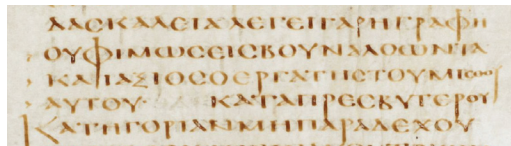 ΔΑϹΚΑΛΕΙΑΛΕΓΕΙΓΑΡΗΓΡΑΦΗ
ΟΥΦΙΜΩϹΕΙϹΒΟΥΝΑΛΟΩΝΤΑ
ΚΑΙΑΞΙΟϹΟΕΡΓΑΤΗϹΤΟΥΜΙϹΘΟΥ
ΑΥΤΟΥ ΚΑΤΑΠΡΕϹΒΥΤΕΡΟΥ
ΚΑΤΗΓΟΡΙΑΝΜΗΠΑΡΑΔΕΧΟΥ